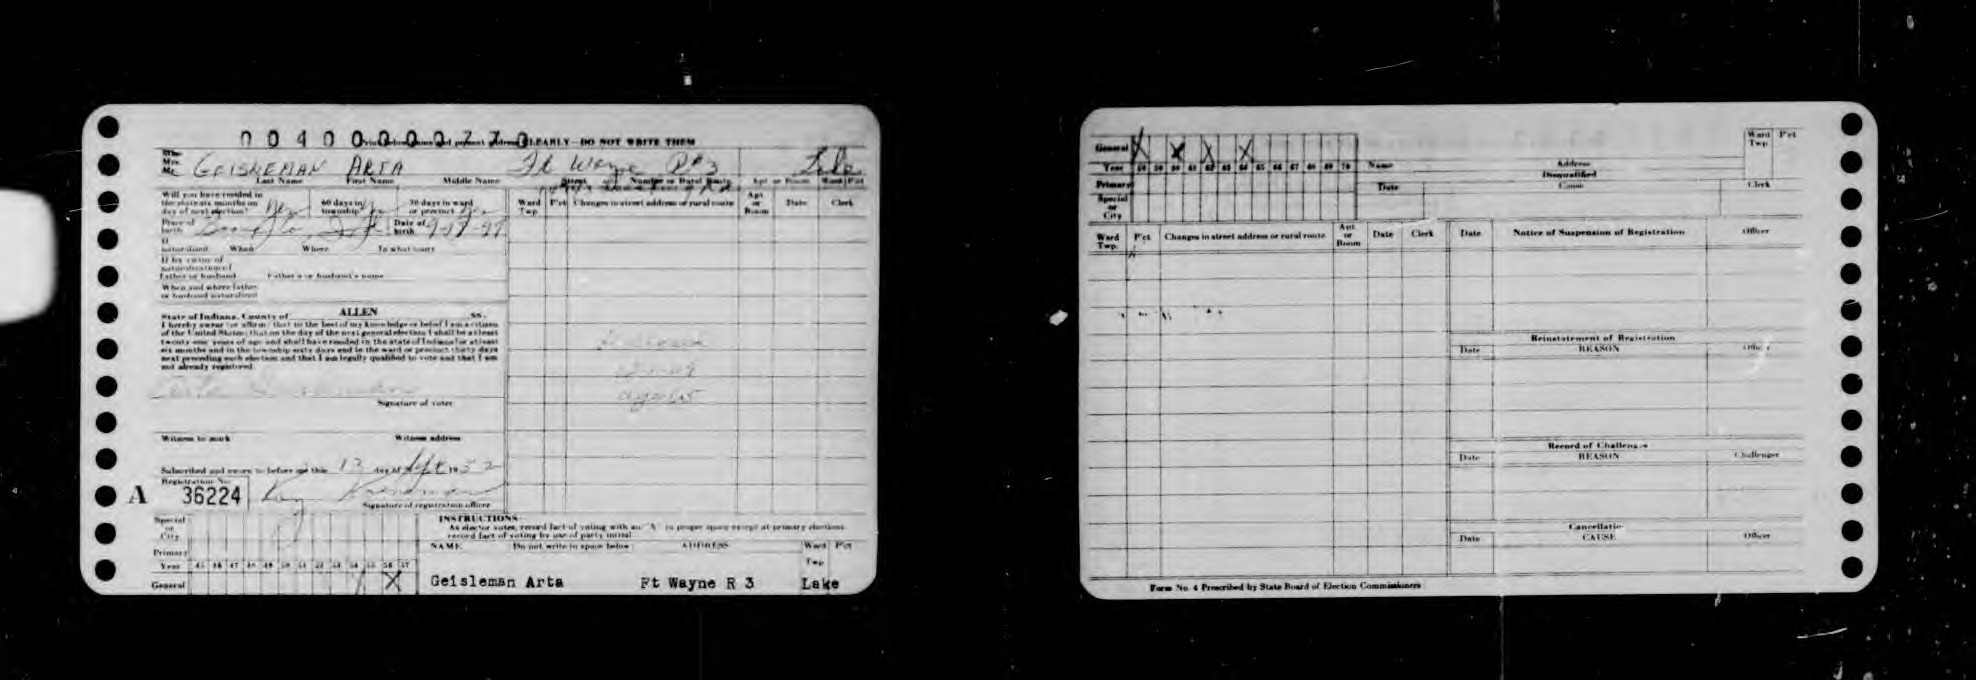 0 0 4 0 0 0 0 0 7 7 0
CLEARLY—DO NOT WRITE THEM
Mrs.
GEISLEMAN ARTA Ft Wayne R #3 Lake
Last Name First Name Middle Name Street Number or Rural Route Apt or Room Ward Pct
Will you have resided in the state six months on day of next election? Yes 60 days in township? Yes 30 days in ward or precinct Yes
Place of birth Date of birth
If naturalized When Where To what court
If by virtue of naturalization of Father or husband Father's or husband's name
When and where father or husband naturalized
Ward Twp P'ct Changes in street address or rural route Apt. or Room Date Clerk
State of Indiana, County of ALLEN SS.
I hereby swear (or affirm) that to the best of my knowledge or belief I am a citizen
of the United States; that on the day of the next general election I shall be at least
twenty-one years of age and shall have resided in the state of Indiana for at least
six months and in the township sixty days and in the ward or precinct thirty days
next preceding such election and that I am legally qualified to vote and that I am
not already registered.
Signature of voter
Deceased
age 65
Witness to mark Witness address
Subscribed and sworn to before me this 13 day of Sept 1952
Registration No.
A 36224
Signature of registration officer
Special or City
Primary
Year 45 46 47 48 49 50 51 52 53 54 55 56 57
General X
INSTRUCTIONS
As elector votes, record fact of voting with an "X" in proper space except at primary elections
record fact of voting by use of party initial.
NAME Do not write in space below ADDRESS Ward Twp P'ct
Geisleman Arta Ft Wayne R 3 Lake
General X X X X
Year 58 59 60 61 62 63 64 65 66 67 68 69 70
Primary
Special or City
Name Address Ward Twp P'ct
Disqualified
Date Cause Clerk
Ward Twp. P'ct Changes in street address or rural route Apt. or Room Date Clerk
Date Notice of Suspension of Registration Officer
Reinstatement of Registration
Date REASON Officer
Record of Challenges
Date REASON Challenger
Cancellation
Date CAUSE Officer
Form No. 4 Prescribed by State Board of Election Commissioners